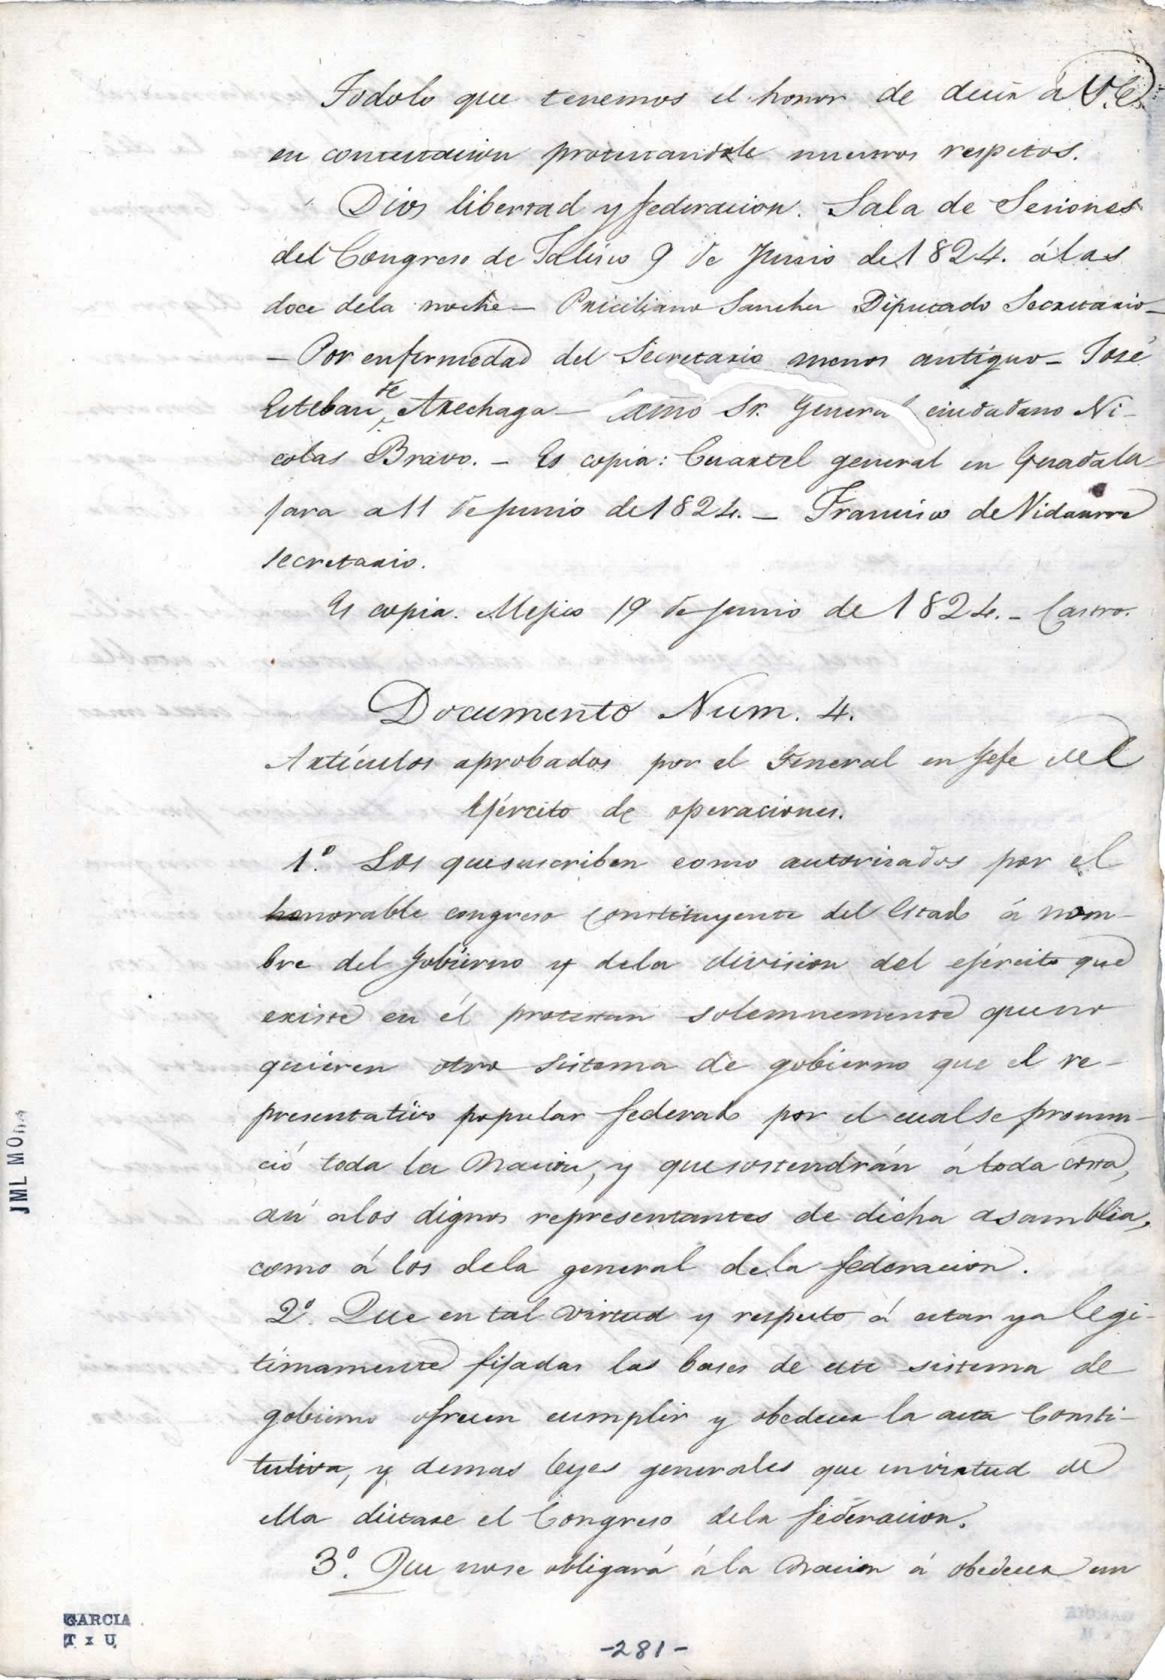 Todolo que tenemos el honor de decir á V.E.
en contestacion protestandole nuestros respetos.
Dios libertad y federacion. Sala de Sesiones
del Congreso de Jalisco 9 de Junio de 1824. á las
doce dela noche — Prisciliano Sanchez Diputado Secretario —
— Por enfermedad del Secretario menos antiguo — José
Esteban de Arechaga — Exmo Sr. General ciudadano Ni-
colas Bravo. — Es copia: Cuartel general en Guadala-
jara a 11 de junio de 1824. — Francisco de Vidaurre
secretario.
Es copia. Mejico 19 de junio de 1824. — Castro.
Documento Num. 4.
Artículos aprobados por el General en Jefe del
Ejército de operaciones.
1º. Los quesuscriben como autorizados por el
honorable congreso constituyente del Estado á nom-
bre del gobierno y dela division del ejército que
existe en él protestan solemnemente queno
quieren otro sistema de gobierno que el re-
presentativo popular federal por el cualse pronun-
ció toda la Nacion, y quesostendrán átoda costa,
asi alos dignos representantes de dicha asamblea,
como á los dela general dela federacion.
2º. Que en tal virtud y respecto á estar ya legi-
timamente fijadas las bases de este sistema de
gobierno ofrecen cumplir y obedecer la acta Consti-
tutiva, y demas leyes generales que envirtud de
ella dictare el Congreso dela federacion.
3º. Que nose obligará á la Nacion á obedecer un
JML MORA
GARCIA
T x U
-281-